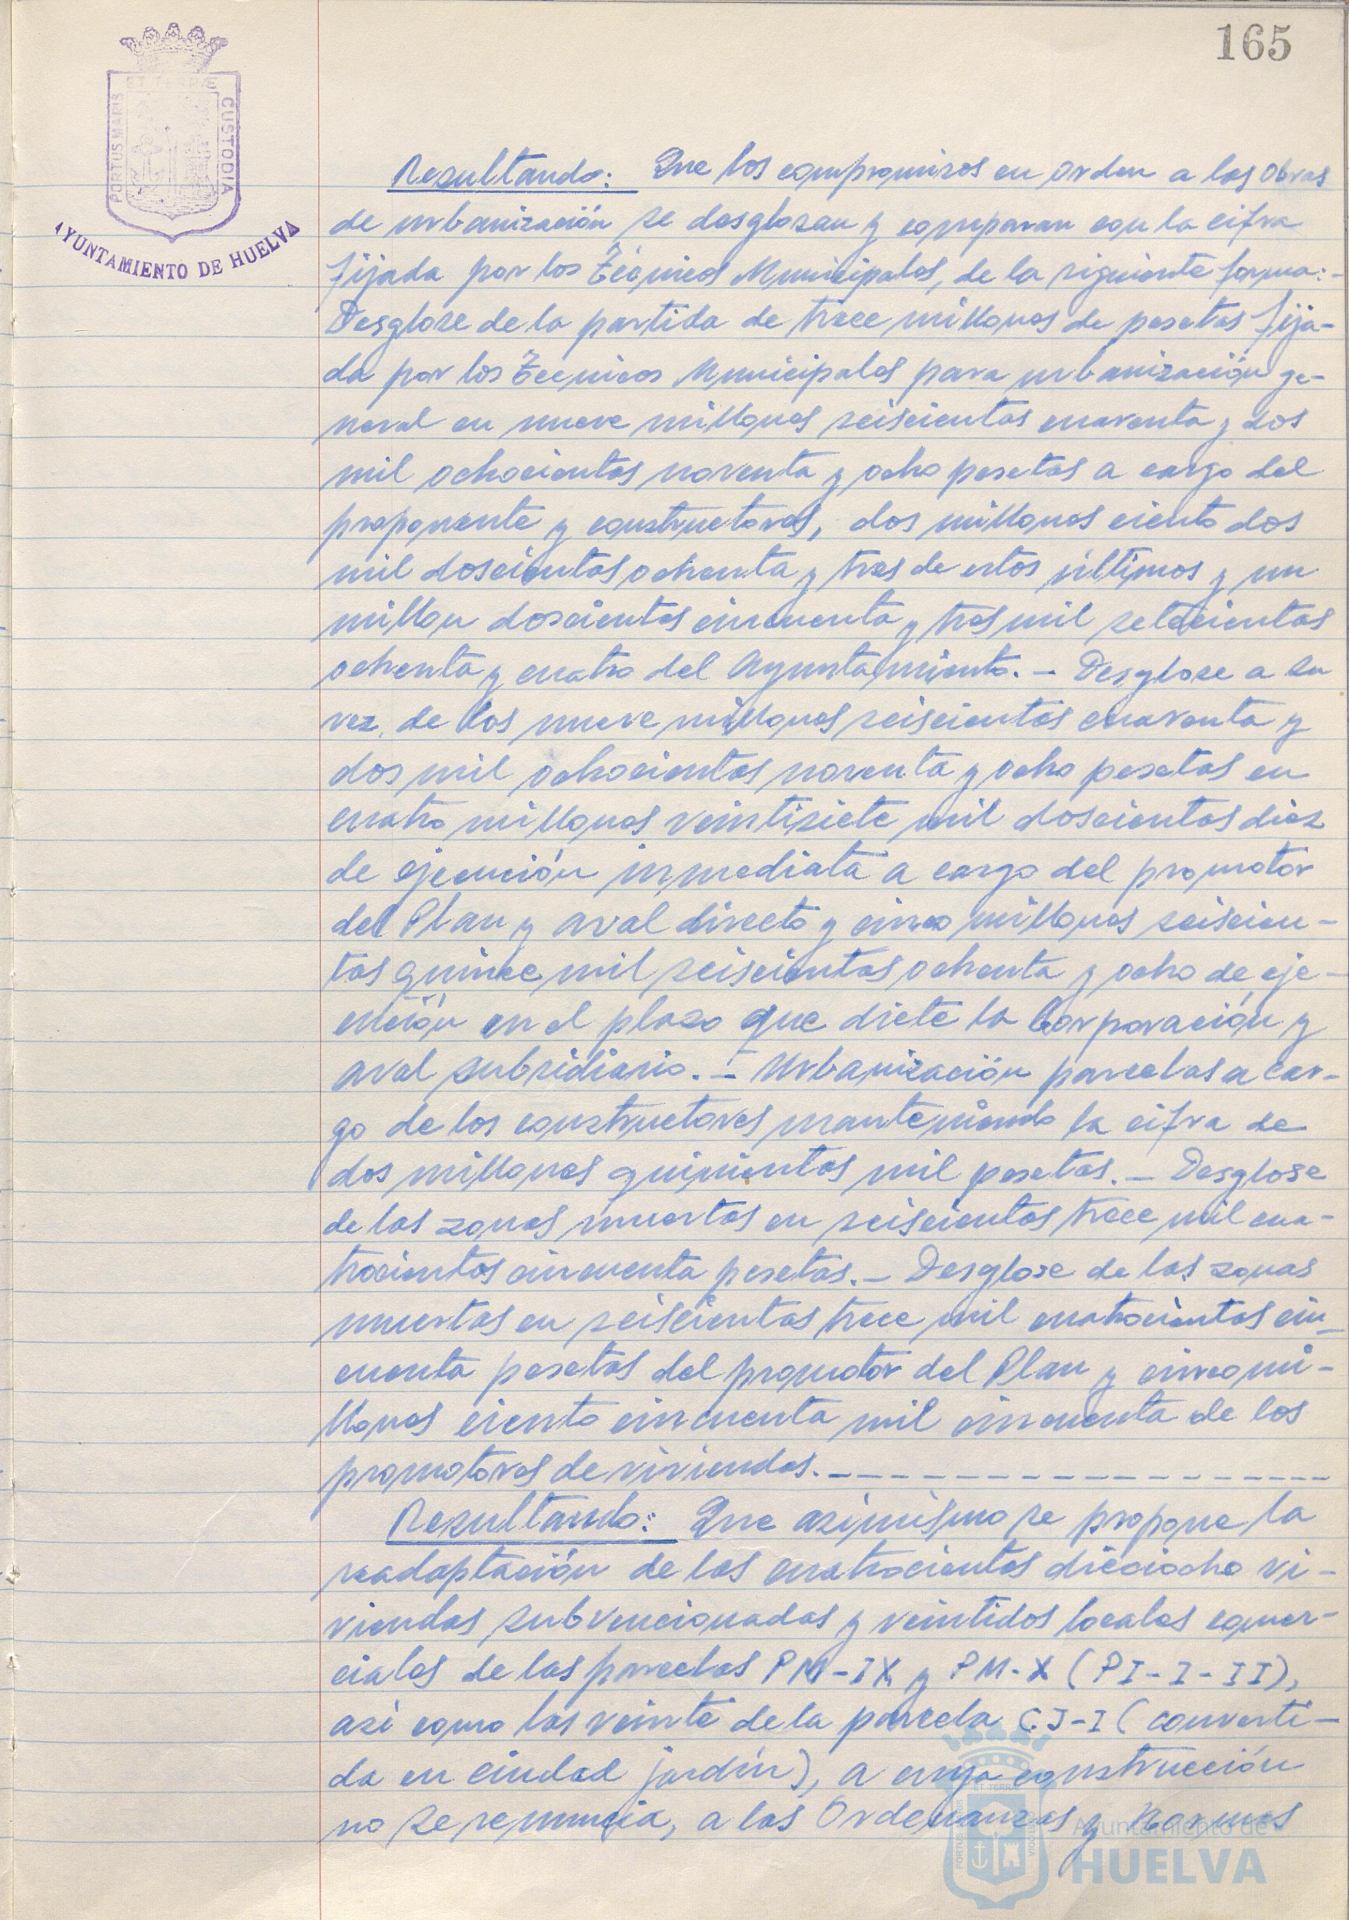 165
ET TERRÆ
PORTUS MARIS
CUSTODIA
AYUNTAMIENTO DE HUELVA
Resultando: Que los compromisos en orden a las obras
de urbanización se desglosan y comparan con la cifra
fijada por los Técnicos Municipales, de la siguiente forma:-
Desglose de la partida de trece millones de pesetas fija-
da por los Técnicos Municipales para urbanización ge-
neral en nueve millones seiscientas cuarenta y dos
mil ochocientas noventa y ocho pesetas a cargo del
proponente y constructores, dos millones ciento dos
mil doscientas ochenta y tres de estos últimos y un
millon doscientas cincuenta y tres mil setecientas
ochenta y cuatro del Ayuntamiento.- Desglose a su
vez, de los nueve millones seiscientas cuarenta y
dos mil ochocientas noventa y ocho pesetas en
cuatro millones veintisiete mil doscientas diez
de ejecución inmediata a cargo del promotor
del Plan y aval directo y cinco millones seiscien-
tas quince mil seiscientas ochenta y ocho de eje-
cución en el plazo que dicte la Corporación y
aval subsidiario.- Urbanización parcelas a car-
go de los constructores manteniendo la cifra de
dos millones quinientas mil pesetas.- Desglose
de las zonas muertas en seiscientas trece mil cua-
trocientas cincuenta pesetas.- Desglose de las zonas
muertas en seiscientas trece mil cuatrocientas cin-
cuenta pesetas del promotor del Plan y cinco mi-
llones ciento cincuenta mil cincuenta de los
promotores de viviendas.- - - - - - - - - - - - - - - -
Resultando: Que asimismo se propone la
readaptación de las cuatrocientas dieciocho vi-
viendas subvencionadas y veintidos locales comer-
ciales de las parcelas PM-IX y PM-X (PI-I-II),
asi como las veinte de la parcela CJ-I (converti-
da en ciudad jardín), a cuya construcción
no se renuncia, a las Ordenanzas y Normas
Ayuntamiento de
HUELVA